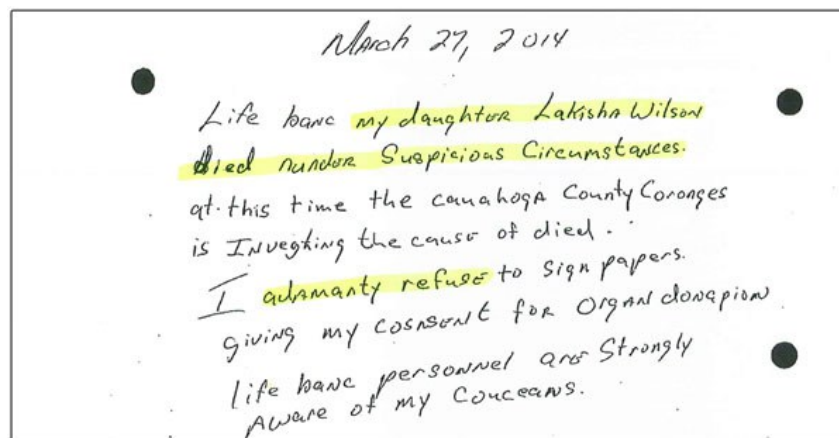 March 27, 2014
Life banc my daughter Lakisha Wilson
died nundor Suspicious Circumstances.
at this time the cauahoga County Coronges
is Invegking the cause of died.
I adamanty refuse to sign papers.
giving my cosnsent for organ donapion
life banc personnel are strongly
Aware of my Couceans.